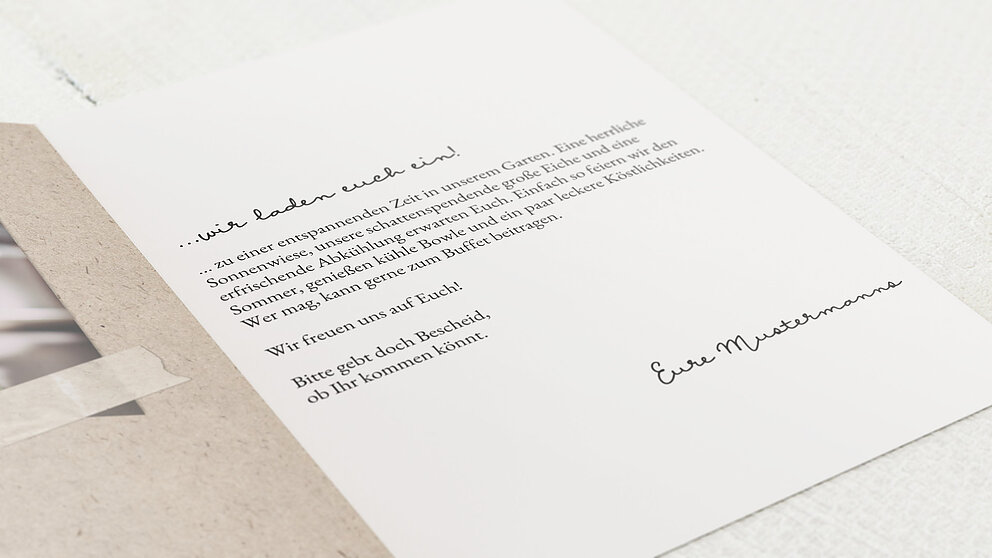 ...wir laden euch ein!
... zu einer entspannenden Zeit in unserem Garten. Eine herrliche
Sonnenwiese, unsere schattenspendende große Eiche und eine
erfrischende Abkühlung erwarten Euch. Einfach so feiern wir den
Sommer, genießen kühle Bowle und ein paar leckere Köstlichkeiten.
Wer mag, kann gerne zum Buffet beitragen.
Wir freuen uns auf Euch!
Bitte gebt doch Bescheid,
ob Ihr kommen könnt.
Eure Mustermanns